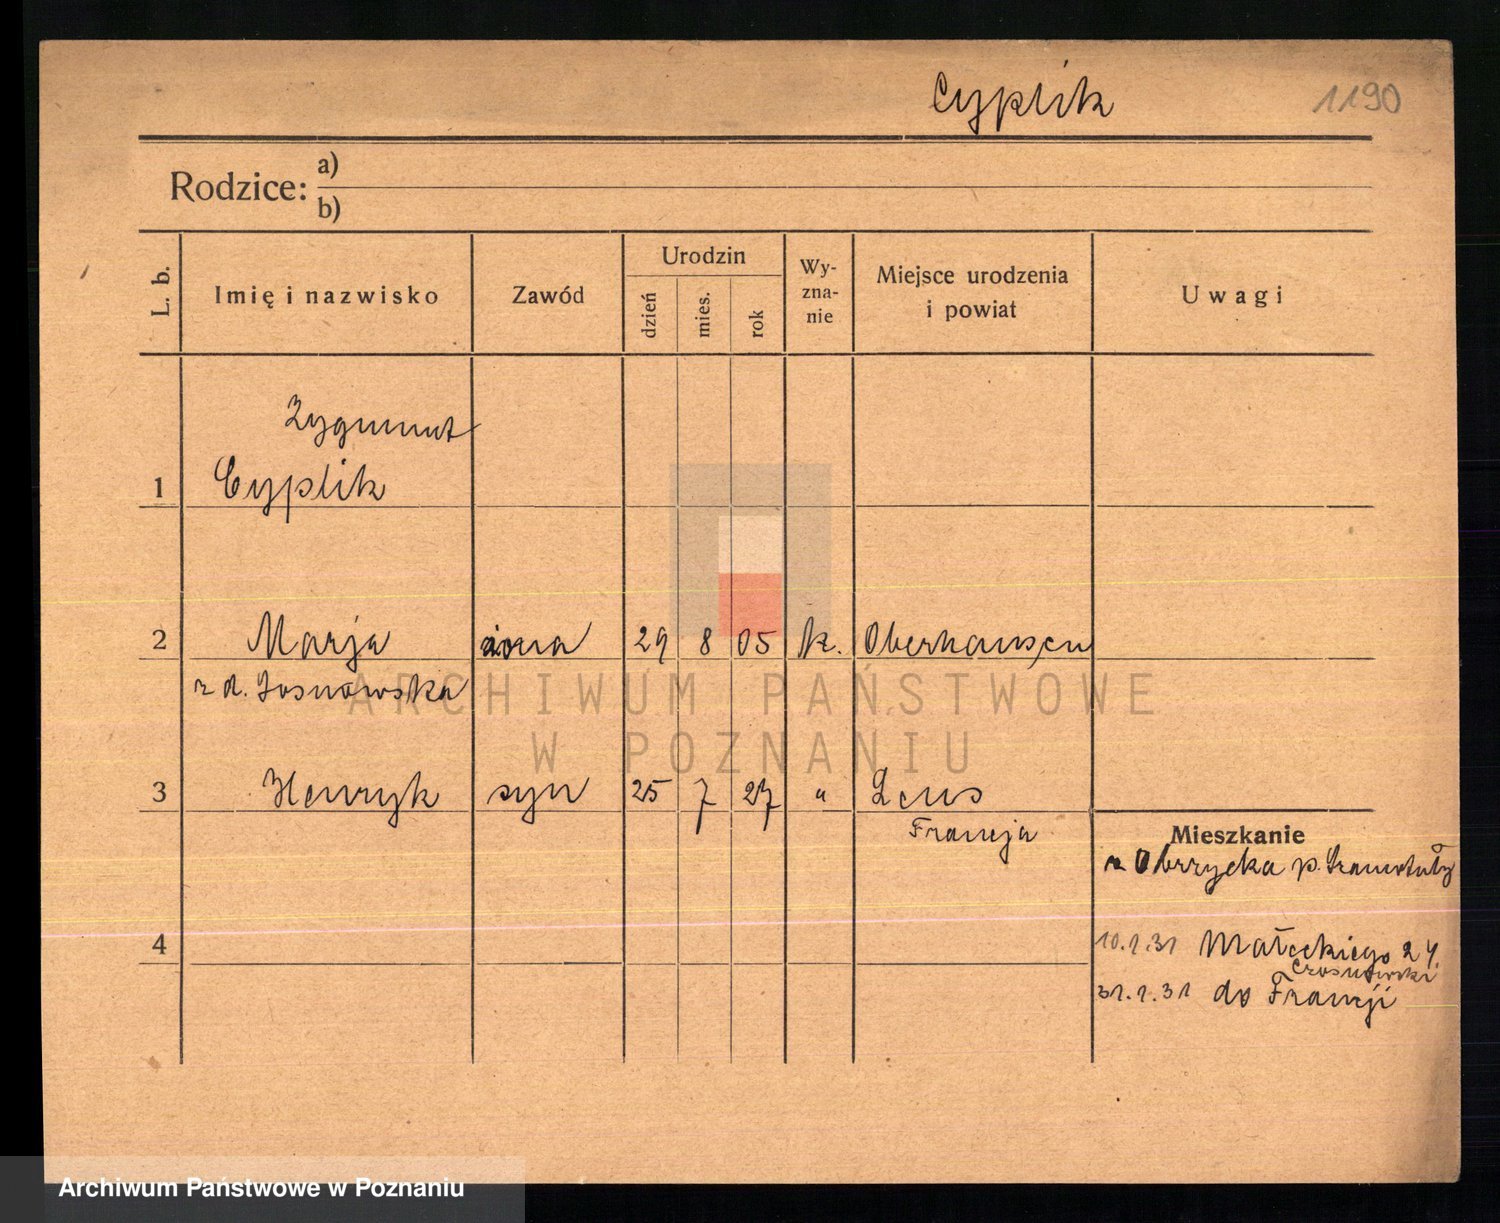 Cyplik 1190
Rodzice: a)
b)
L. b. Imię i nazwisko Zawód Urodzin dzień mies. rok Wy-zna-nie Miejsce urodzenia i powiat Uwagi
Zygmunt
1 Cyplik
2 Marja żona 29 8 05 k. Oberhausen
z d. Sosnowska
3 Henryk syn 25 7 27 " Lens
Francja
Mieszkanie
z Obrzycka p. Szamotuły
4
10.1.31 Małeckiego 24
31.1.31 do Francji
ARCHIWUM PAŃSTWOWE
W POZNANIU
Archiwum Państwowe w Poznaniu